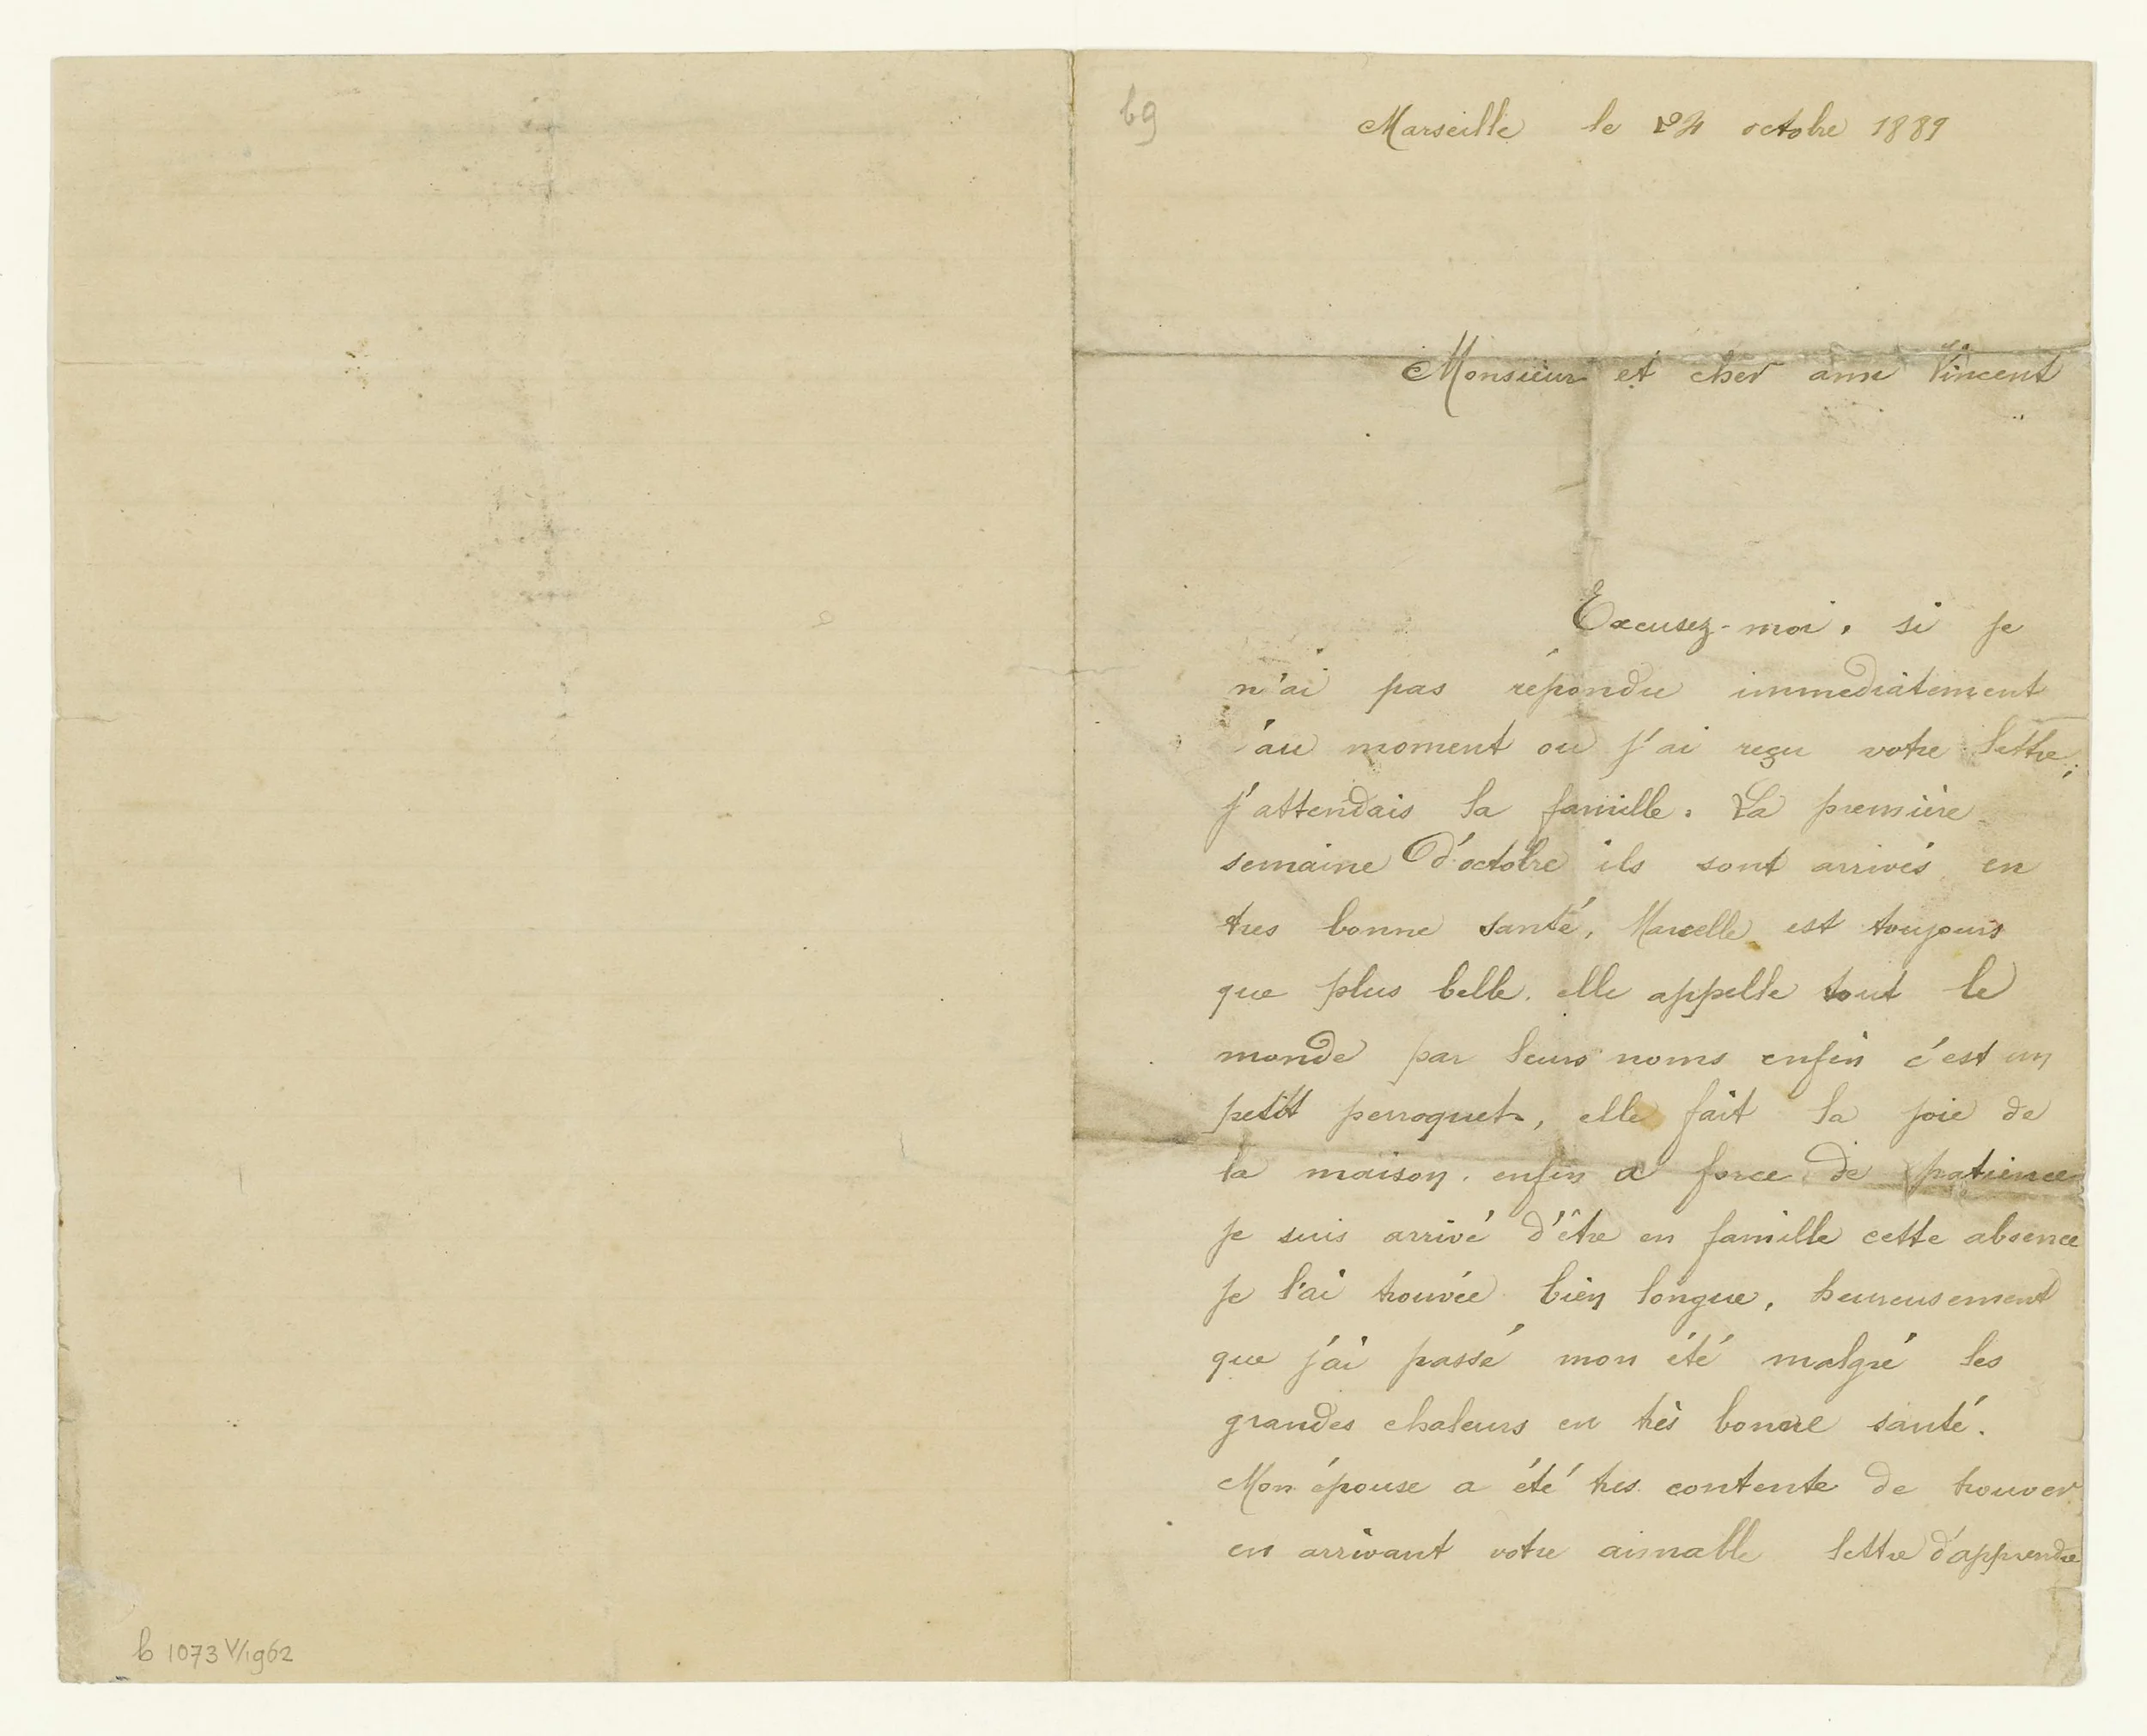 69
Marseille le 24 octobre 1889
Monsieur et cher ami Vincent
Excusez-moi, si je
n'ai pas répondu immediatement
au moment ou j'ai reçu votre lettre,
j'attendais la famille. La première
semaine d'octobre ils sont arrivés en
tres bonne santé, Marcelle est toujours
que plus belle. elle appelle tout le
monde par leurs noms enfin c'est un
petit perroquet, elle fait la joie de
la maison. enfin a force de patience
je suis arrivé d'être en famille cette absence
je l'ai trouvée bien longue, heureusement
que j'ai passé mon été malgré les
grandes chaleurs en très bonne santé.
Mon épouse a été tres contente de trouver
en arrivant votre aimable lettre d'apprendre
b 1073 V/1962